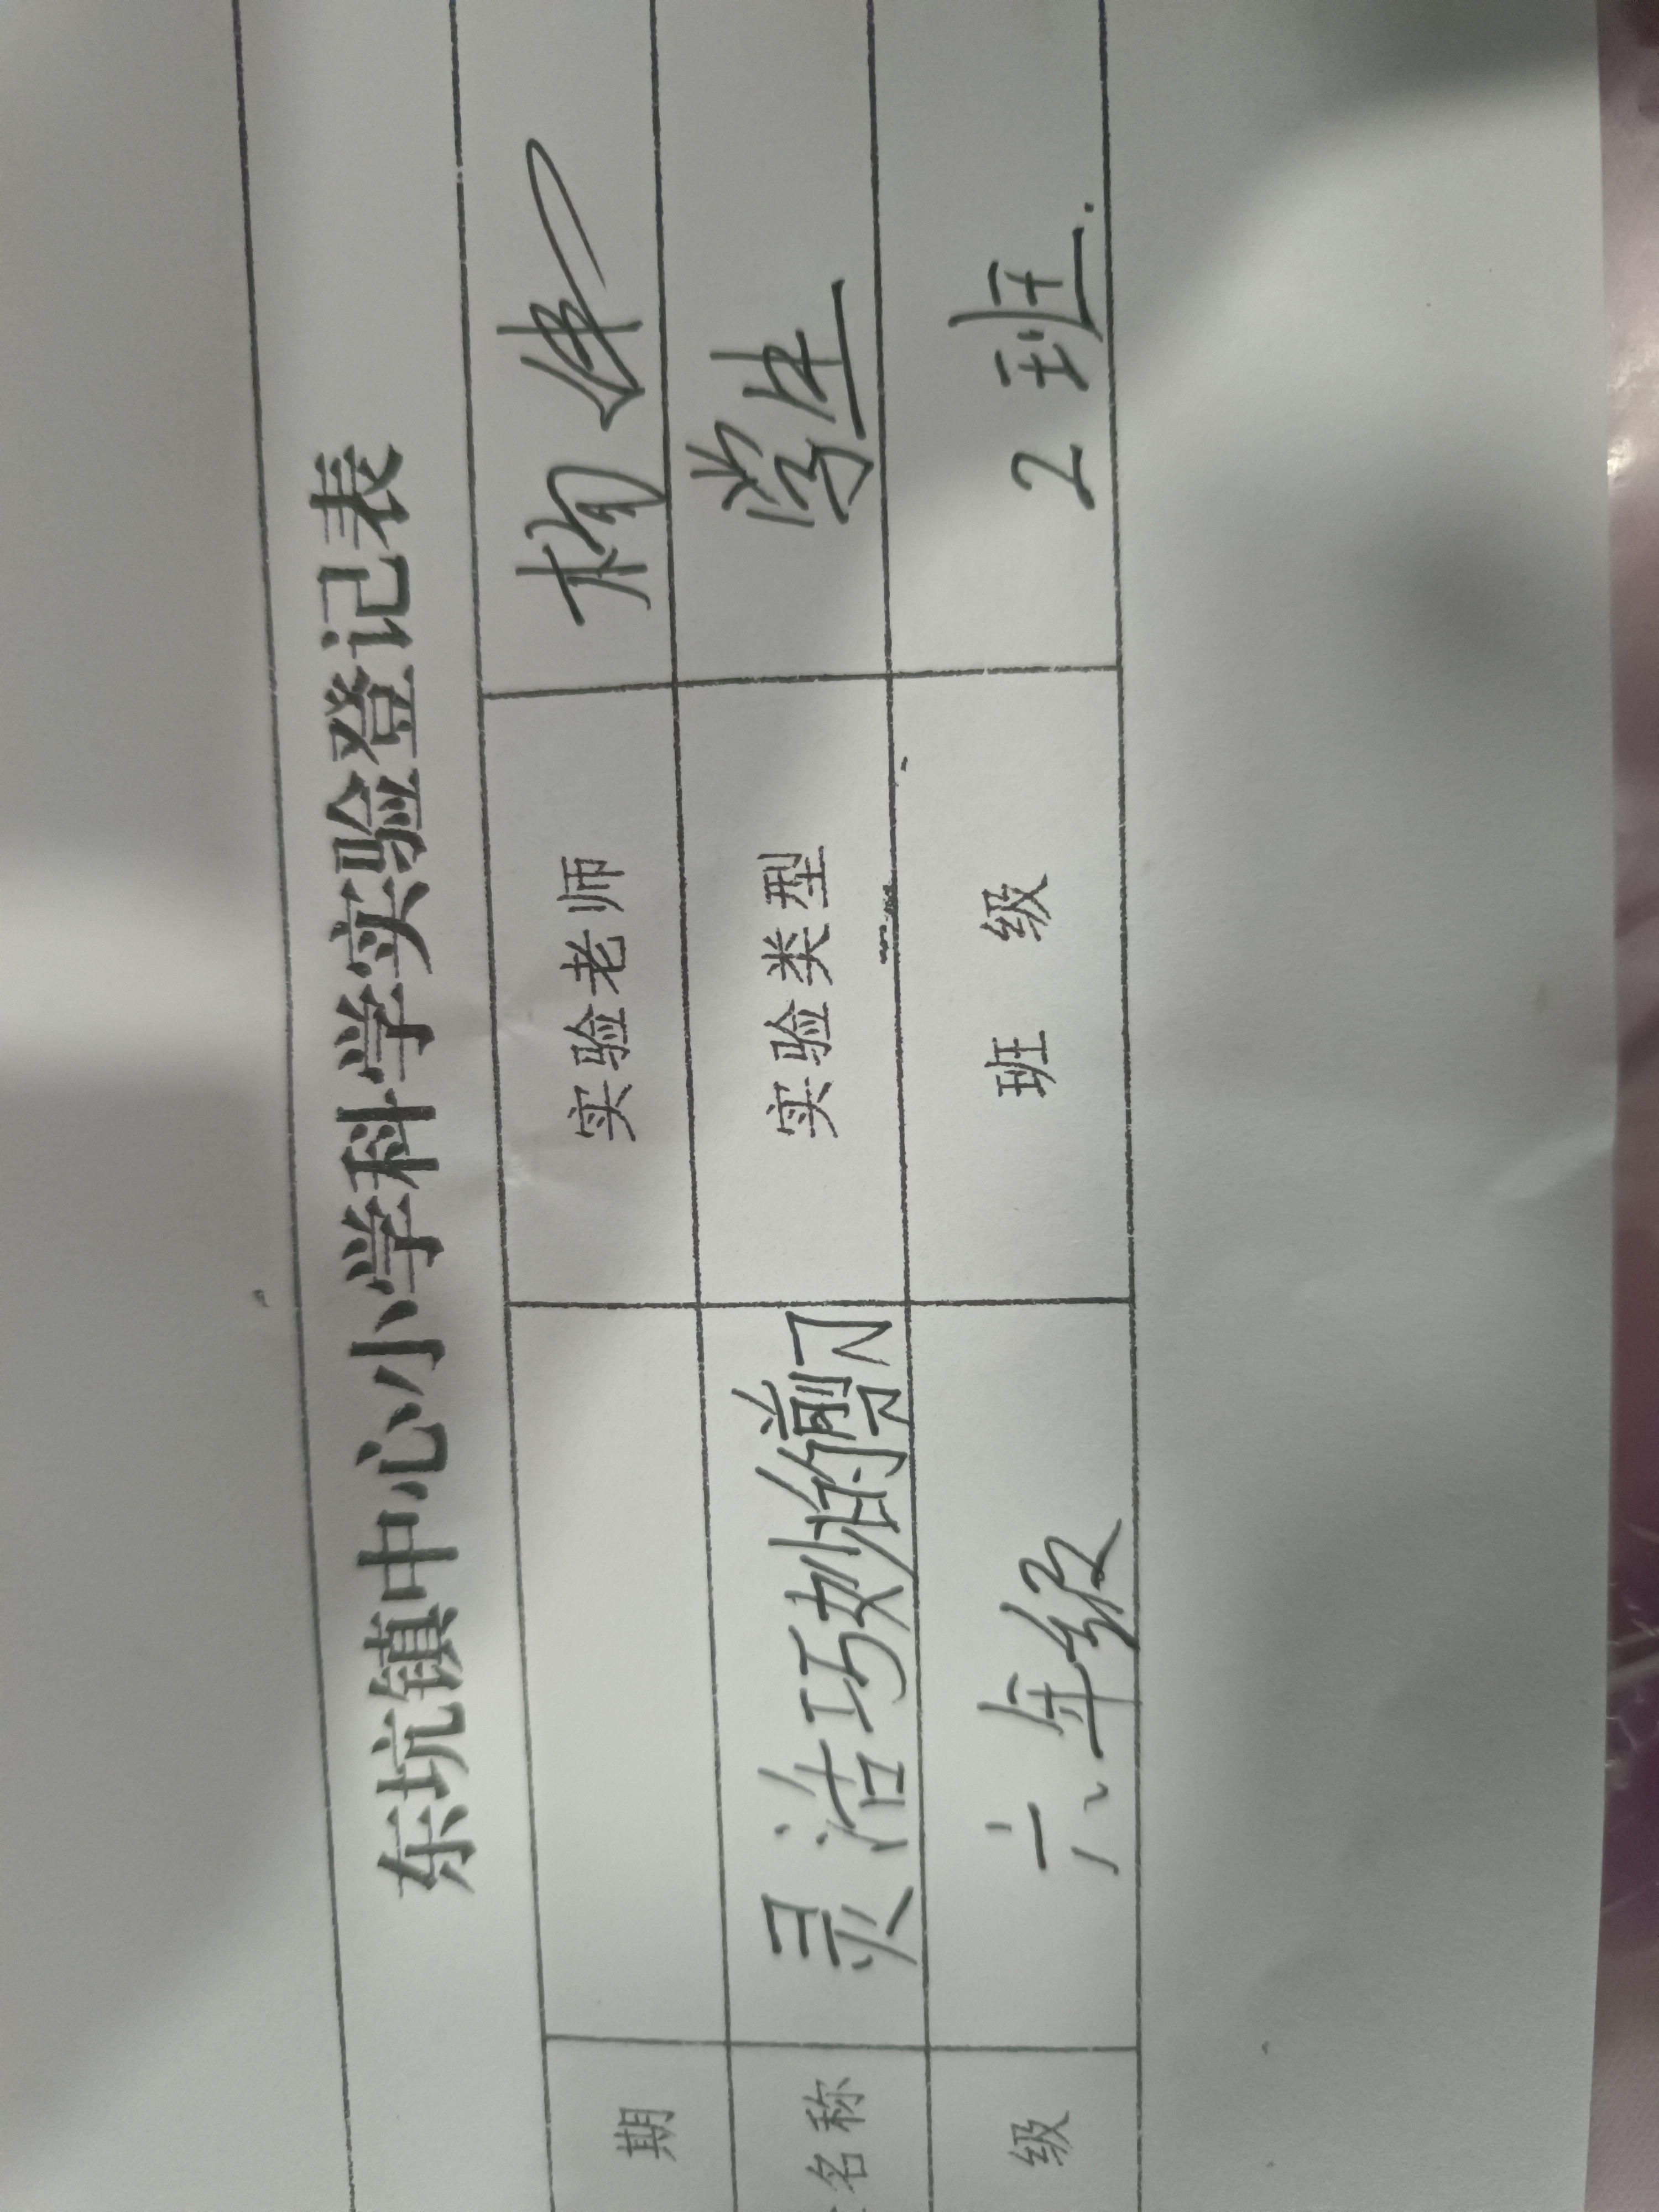 东坑镇中心小学科学实验登记表
期 实验老师 杨伟
名称 灵活巧妙的剪刀 实验类型 学生
级 六年级 班 级 2班.